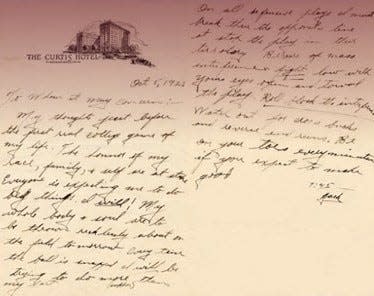 THE CURTIS HOTEL
MINNEAPOLIS
Oct 5, 1923
To Whom it may concern:
My thoughts just before
the first real college game of
my life. The honor of my
race, family, & self are at stake
Everyone is expecting me to do
big things. I will! My
whole body & soul are to
be thrown recklessly about on
the field tomorrow. Every time
the ball is snapped I will be
trying to do more than
my part. (over)
On all defensive plays I must
break thru the opponents line
and stop the play in their
territory. Beware of mass
interference fight low with
your eyes open and toward
the play. Roll block the interference
Watch out for cross bucks
and reverse end runs. Be
on your toes every minute
if you expect to make
good
7:45
Jack